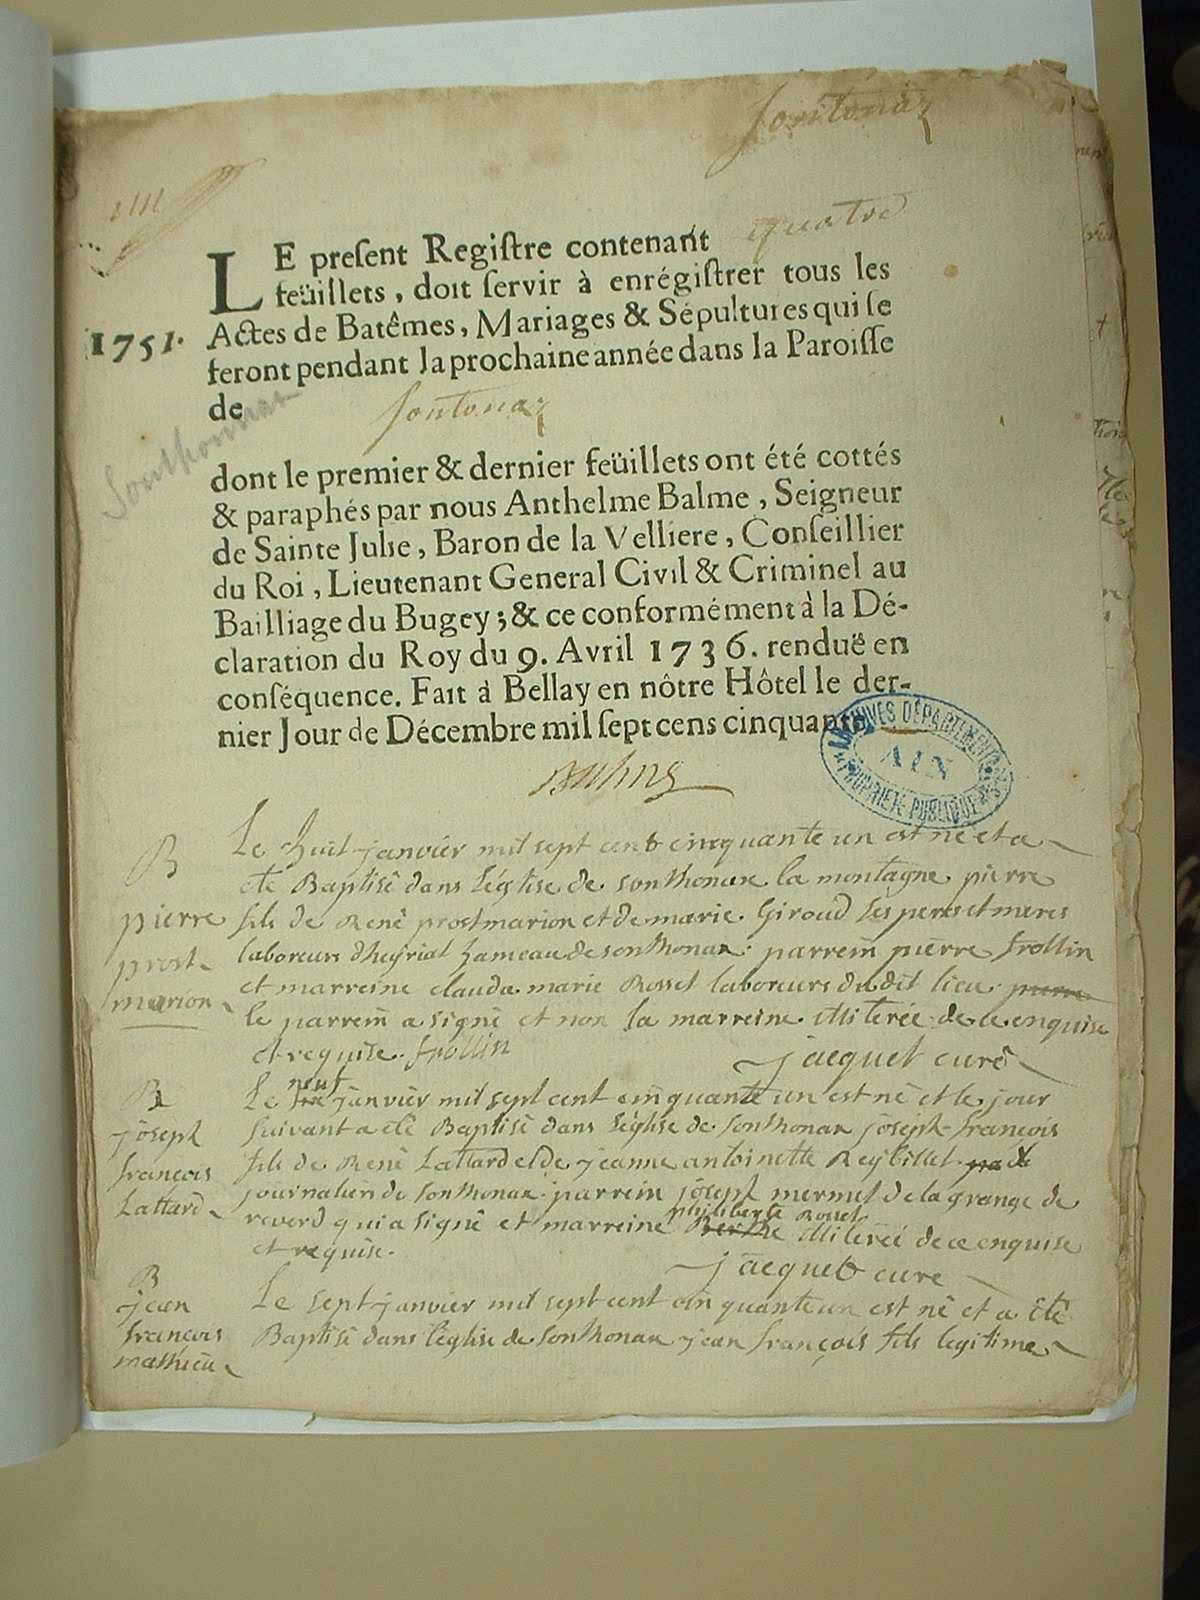 sontonaz
quatre
LE preſent Regiſtre contenant
feüillets, doit ſervir à enrégiſtrer tous les
1751. Actes de Batêmes, Mariages & Sépultures qui ſe
feront pendant la prochaine année dans la Paroiſſe
de sontonaz
Sonthonnax
dont le premier & dernier feüillets ont été cottés
& paraphés par nous Anthelme Balme, Seigneur
de Sainte Julie, Baron de la Velliere, Conſeillier
du Roi, Lieutenant General Civil & Criminel au
Bailliage du Bugey; & ce conformément à la Dé-
claration du Roy du 9. Avril 1736. renduë en
conſéquence. Fait à Bellay en nôtre Hôtel le der-
nier Jour de Décembre mil ſept cens cinquante
ARCHIVES DÉPARTEMENTALES
AIN
PROPRIÉTÉ PUBLIQUE
B
pierre
prost
marion
Le huit janvier mil sept cent cinquante un est né et a
eté Baptisé dans l'église de sonthonax la montagne pierre
fils de René prostmarion et de marie Giroud ses peres et meres
laboreurs dheyriat hameau de sonthonax. parrein pierre frollin
et marreine clauda marie Rosset laboreurs du dit lieu pierre
le parrein a signé et non la marreine illiterée de ce enquise
et requise. frollin
jacquet curé
B
joseph
françois
Lattard
Le neuf janvier mil sept cent cinquante un est né et le jour
suivant a eté Baptisé dans l'église de sonthonax joseph françois
fils de René Lattard et de jeanne antoinette Reybillet
journaliers de sonthonax. parrein joseph mermet de la grange de
reverd qui a signé et marreine philiberte Rosset illiterée de ce enquise
et requise.
jacquet curé
B
jean
françois
mathieu
Le sept janvier mil sept cent cinquante un est né et a été
Baptisé dans l'église de sonthonax jean françois fils legitime